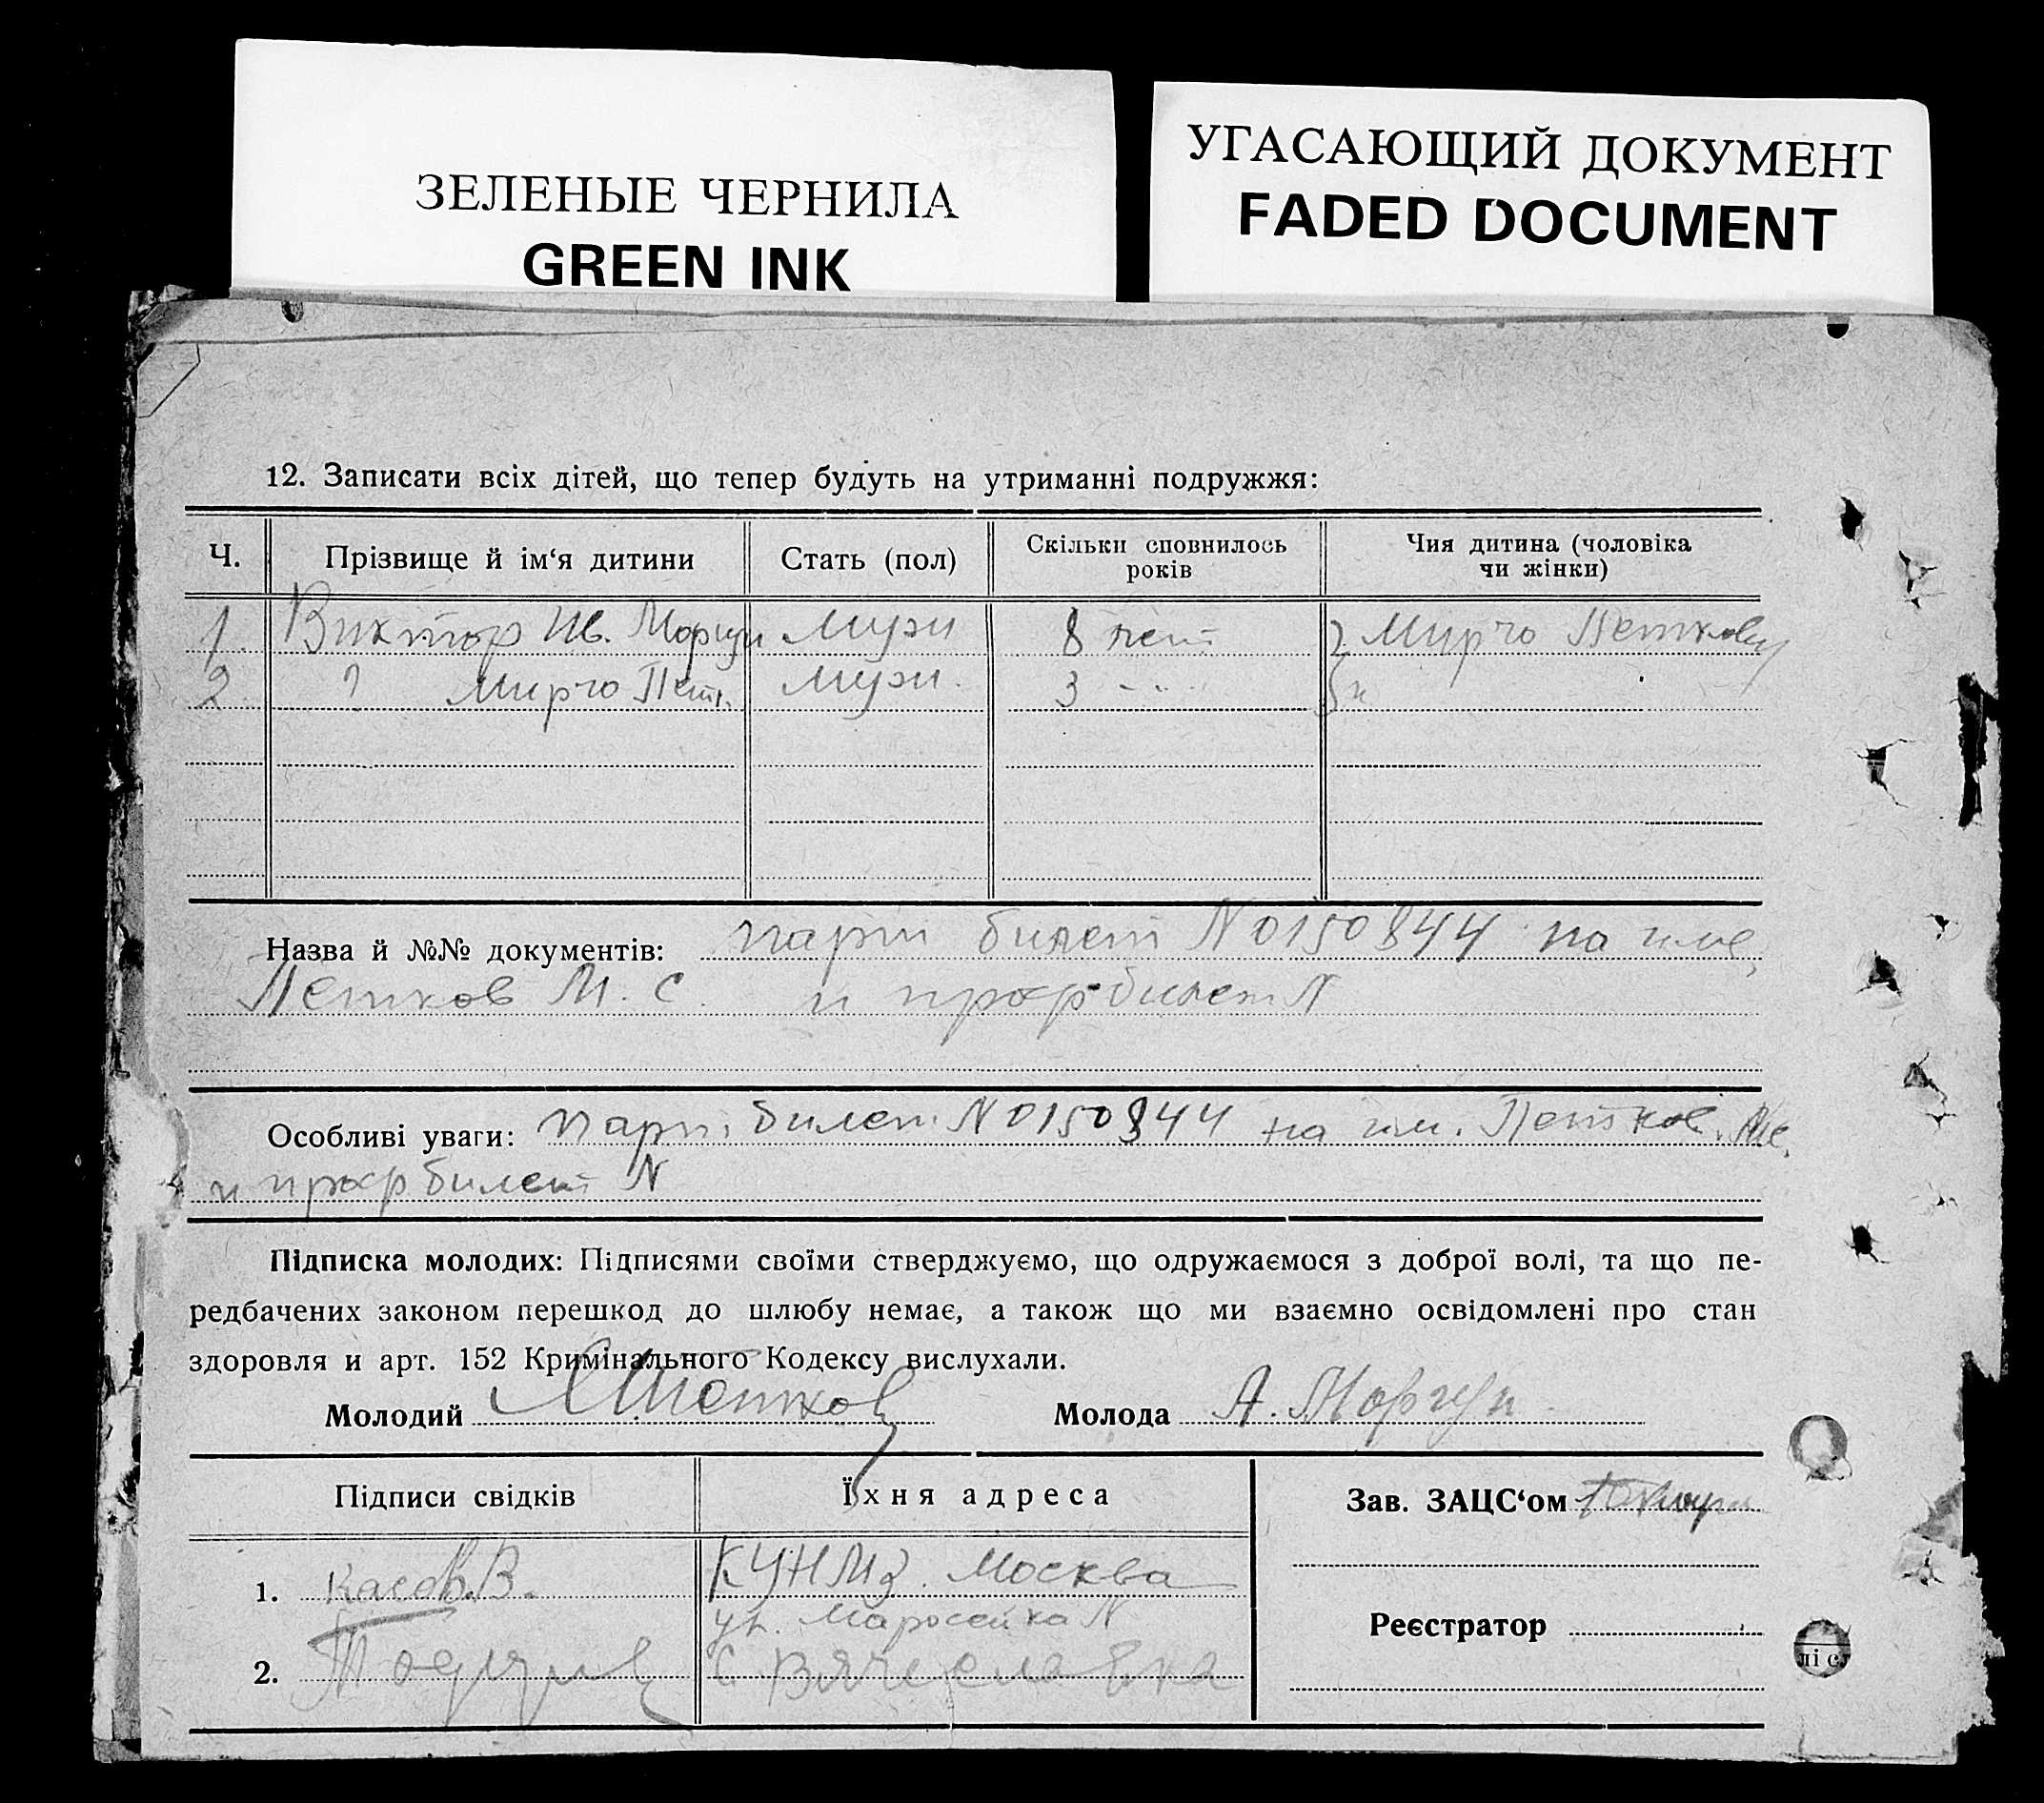 ЗЕЛЕНЫЕ ЧЕРНИЛА
GREEN INK
УГАСАЮЩИЙ ДОКУМЕНТ
FADED DOCUMENT
12. Записати всіх дітей, що тепер будуть на утриманні подружжя:
Ч. Прізвище й ім‘я дитини Стать (пол) Скільки сповнилось років Чия дитина (чоловіка чи жінки)
1. Виктор Ив. Моргун Мужч 8 лет Мирчо Петков
2 Мирчо Петк. Мужч. 3
Назва й №№ документів: парт билет N 0150844 на име,
Петков М. С. и профбилет N
Особливі уваги: парт. билет N 0150844 на им. Петков.
и профбилет N
Підписка молодих: Підписями своїми стверджуємо, що одружаємося з доброї волі, та що пе-
редбачених законом перешкод до шлюбу немає, а також що ми взаємно освідомлені про стан
здоровля и арт. 152 Кримінального Кодексу вислухали.
Молодий Петков Молода А. Моргун
Підписи свідків Їхня адреса Зав. ЗАЦС‘ом
1. В. КУНМЗ. Москва
ул. Маросейка N
Реєстратор
2. с Вячеславка